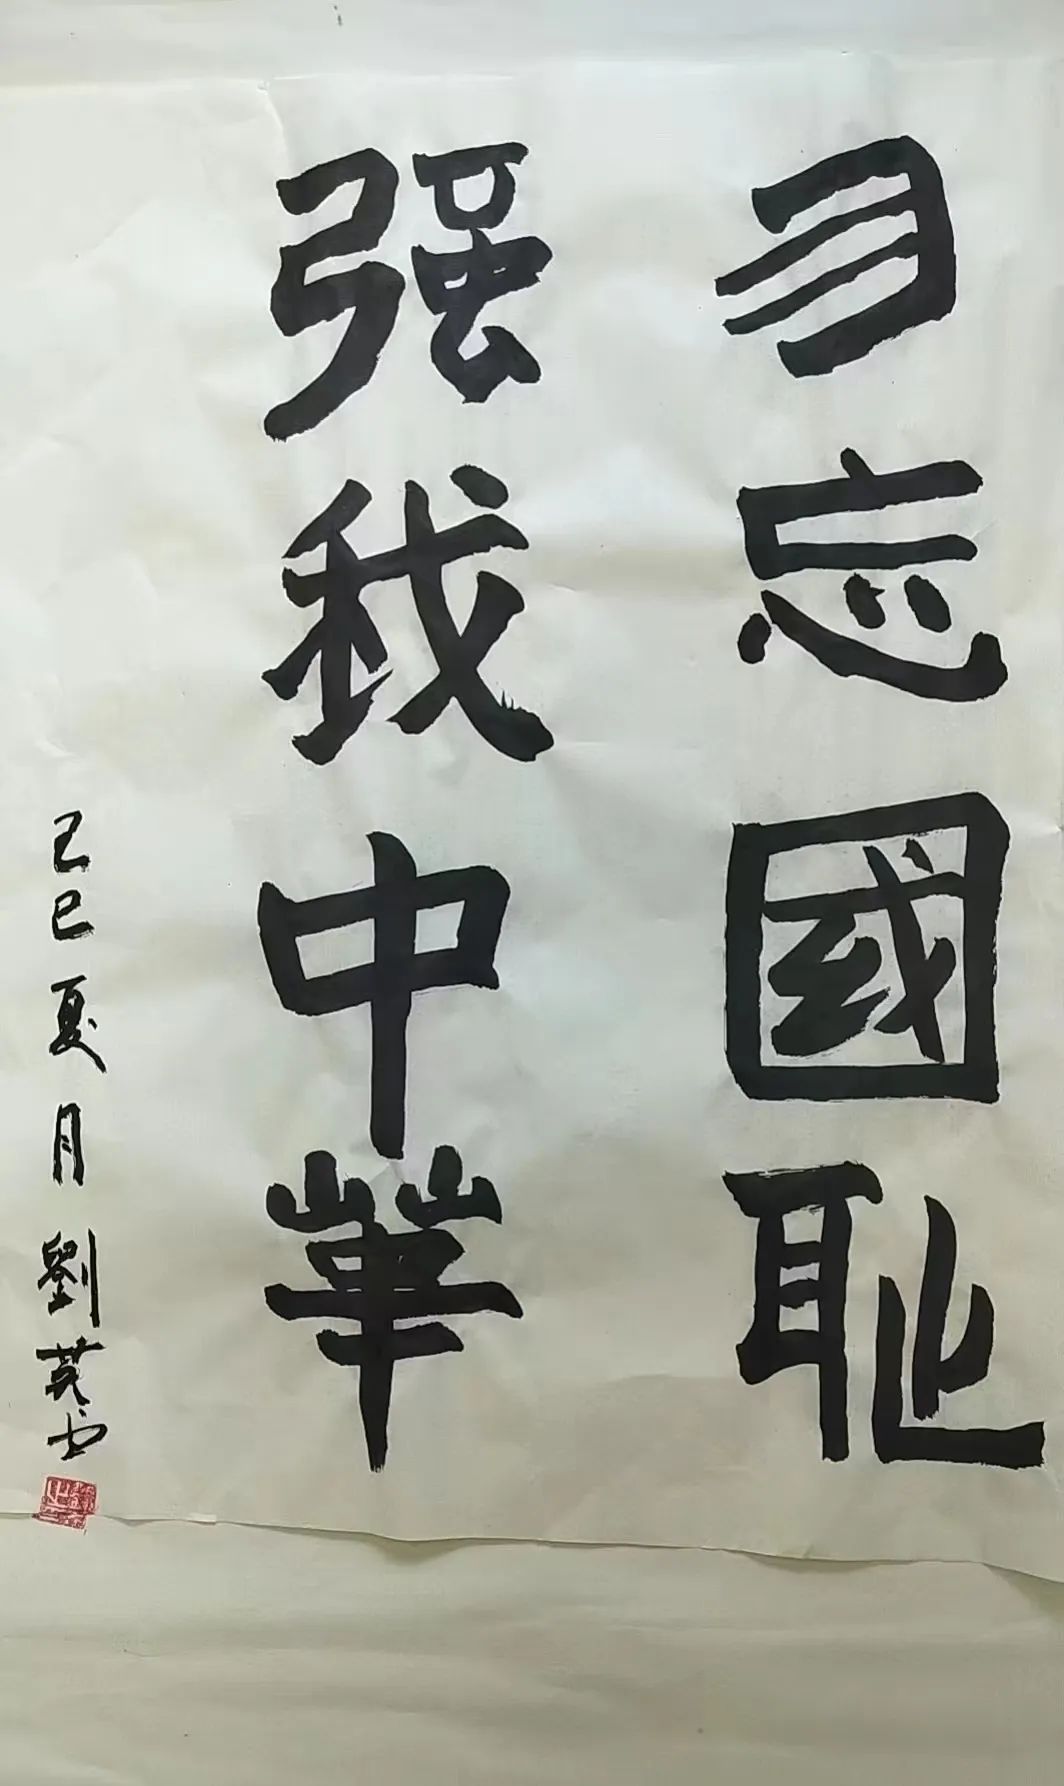 勿忘國耻
强我中華
乙巳夏月劉英书